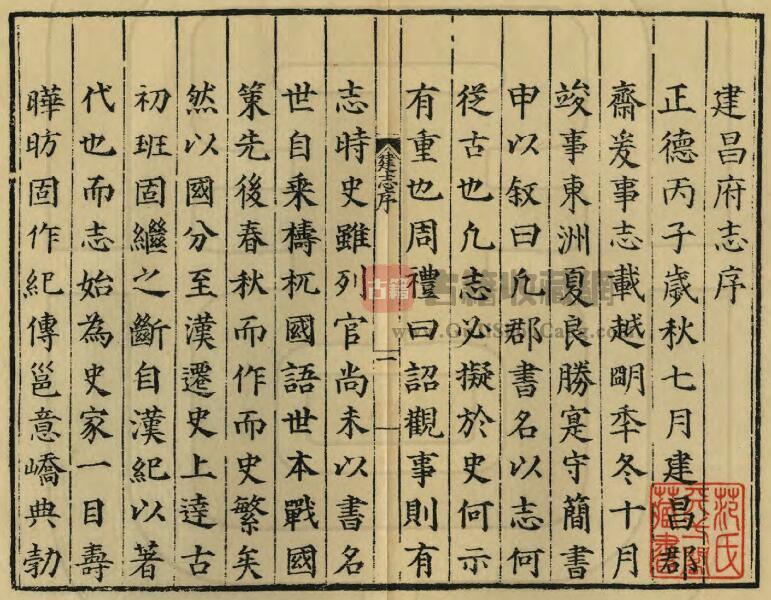 建昌府志序
正德丙子歲秋七月建昌郡
齋爰事志載越明秊冬十月
竣事東洲夏良勝寔守簡書
申以叙曰凡郡書名以志何
從古也凡志必擬於史何示
有重也周禮曰詔觀事則有
建志序
一
志時史雖列官尚未以書名
世自乘檮杌國語世本戰國
策先後春秋而作而史繁矣
然以國分至漢遷史上逹古
初班固繼之斷自漢紀以著
代也而志始為史家一目壽
曄昉固作紀傳邕意嶠典勃
范氏天一閣藏書
古籍
古籍收藏網